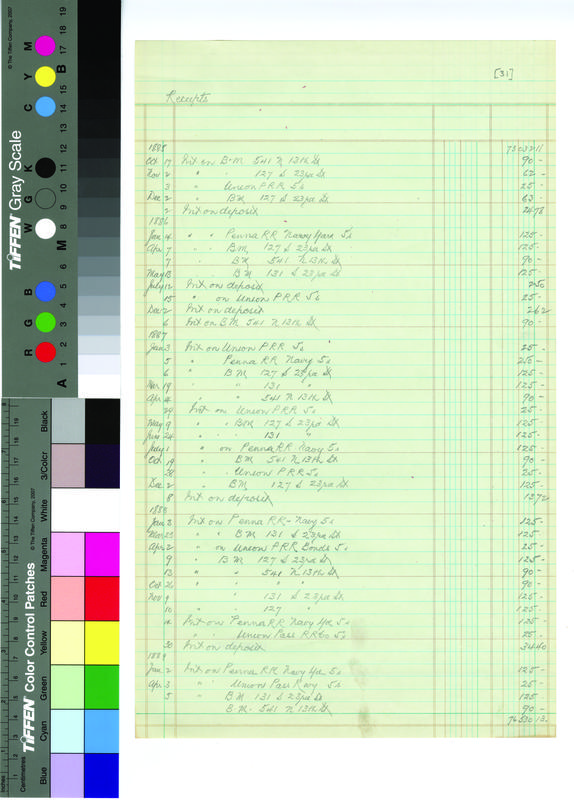 [31]
Receipts
1885 73032 11
Oct 17 Int on B.M. 541 N 13th St 90 -
Nov 2 " " 127 S 23rd St 62 -
3 " Union P.R.R. 5s 25 -
Dec 2 " B.M. 127 S 23rd St 63 -
2 Int on deposit 24 78
1886
Jan 4 " " Penna RR Navy Yard 5s 125 -
Apr 7 " B.M. 127 S 23rd St 125 -
7 " B.M. 541 N 13th St 90 -
May 13 " B.M. 131 S 23rd St 125 -
July 12 Int on deposit 2 50
15 " on Union P.R.R 5s 25 -
Dec 2 Int on deposit 2 62
6 Int on B.M. 541 N 13th St 90 -
1887
Jan 3 Int on Union P.R.R. 5s 25 -
5 " Penna RR Navy 5s
6 " B.M. 127 S 23rd St 125 -
Mar 19 " " 131 " 125 -
Apr 4 " " 541 N 13th St 90 -
29 Int on Union P.R.R 5s 25 -
May 9 " B.M. 127 S 23rd St 125 -
24 " " 131 " 125 -
July 1 " on Penna RR Navy 5s 125 -
Oct 19 " B.M. 541 N 13th St 90 -
" Union P.R.R 5s 25 -
Dec 2 " B.M. 127 S 23rd St 125 -
8 Int on deposit 13 72
1888
Jan 3 Int on Penna RR - Navy 5s 125 -
Mar 23 " " B.M. 131 S 23rd St 125 -
Apr 2 " on Union P.R.R Bonds 5s 25 -
9 " B.M. 127 S 23rd St 125 -
13 " " 541 N 13th St 90 -
Oct 26 " " " " 90 -
Nov 9 " " 131 S 23rd St 125 -
10 " " 127 " 125 -
Int on Penna RR Navy Yd 5s 125 -
" " Union Pass RR Co 5s 25 -
30 Int on deposit 34 40
1889
Jan 2 Int on Penna RR Navy Yd 5s 125 -
Apr 3 " " Union Pass Rwy 5s 25 -
5 " B.M. 131 S 23rd St 125
B.M. 541 N 13th St 90 -
76530 13
© The Tiffen Company, 2007
TIFFEN® Gray Scale
R G B W G K C Y M
A 1 2 3 4 5 6 M 8 9 10 11 12 13 14 15 B 17 18 19
TIFFEN® Color Control Patches
© The Tiffen Company, 2007
Blue Cyan Green Yellow Red Magenta White 3/Color Black
Inches
Centimetres